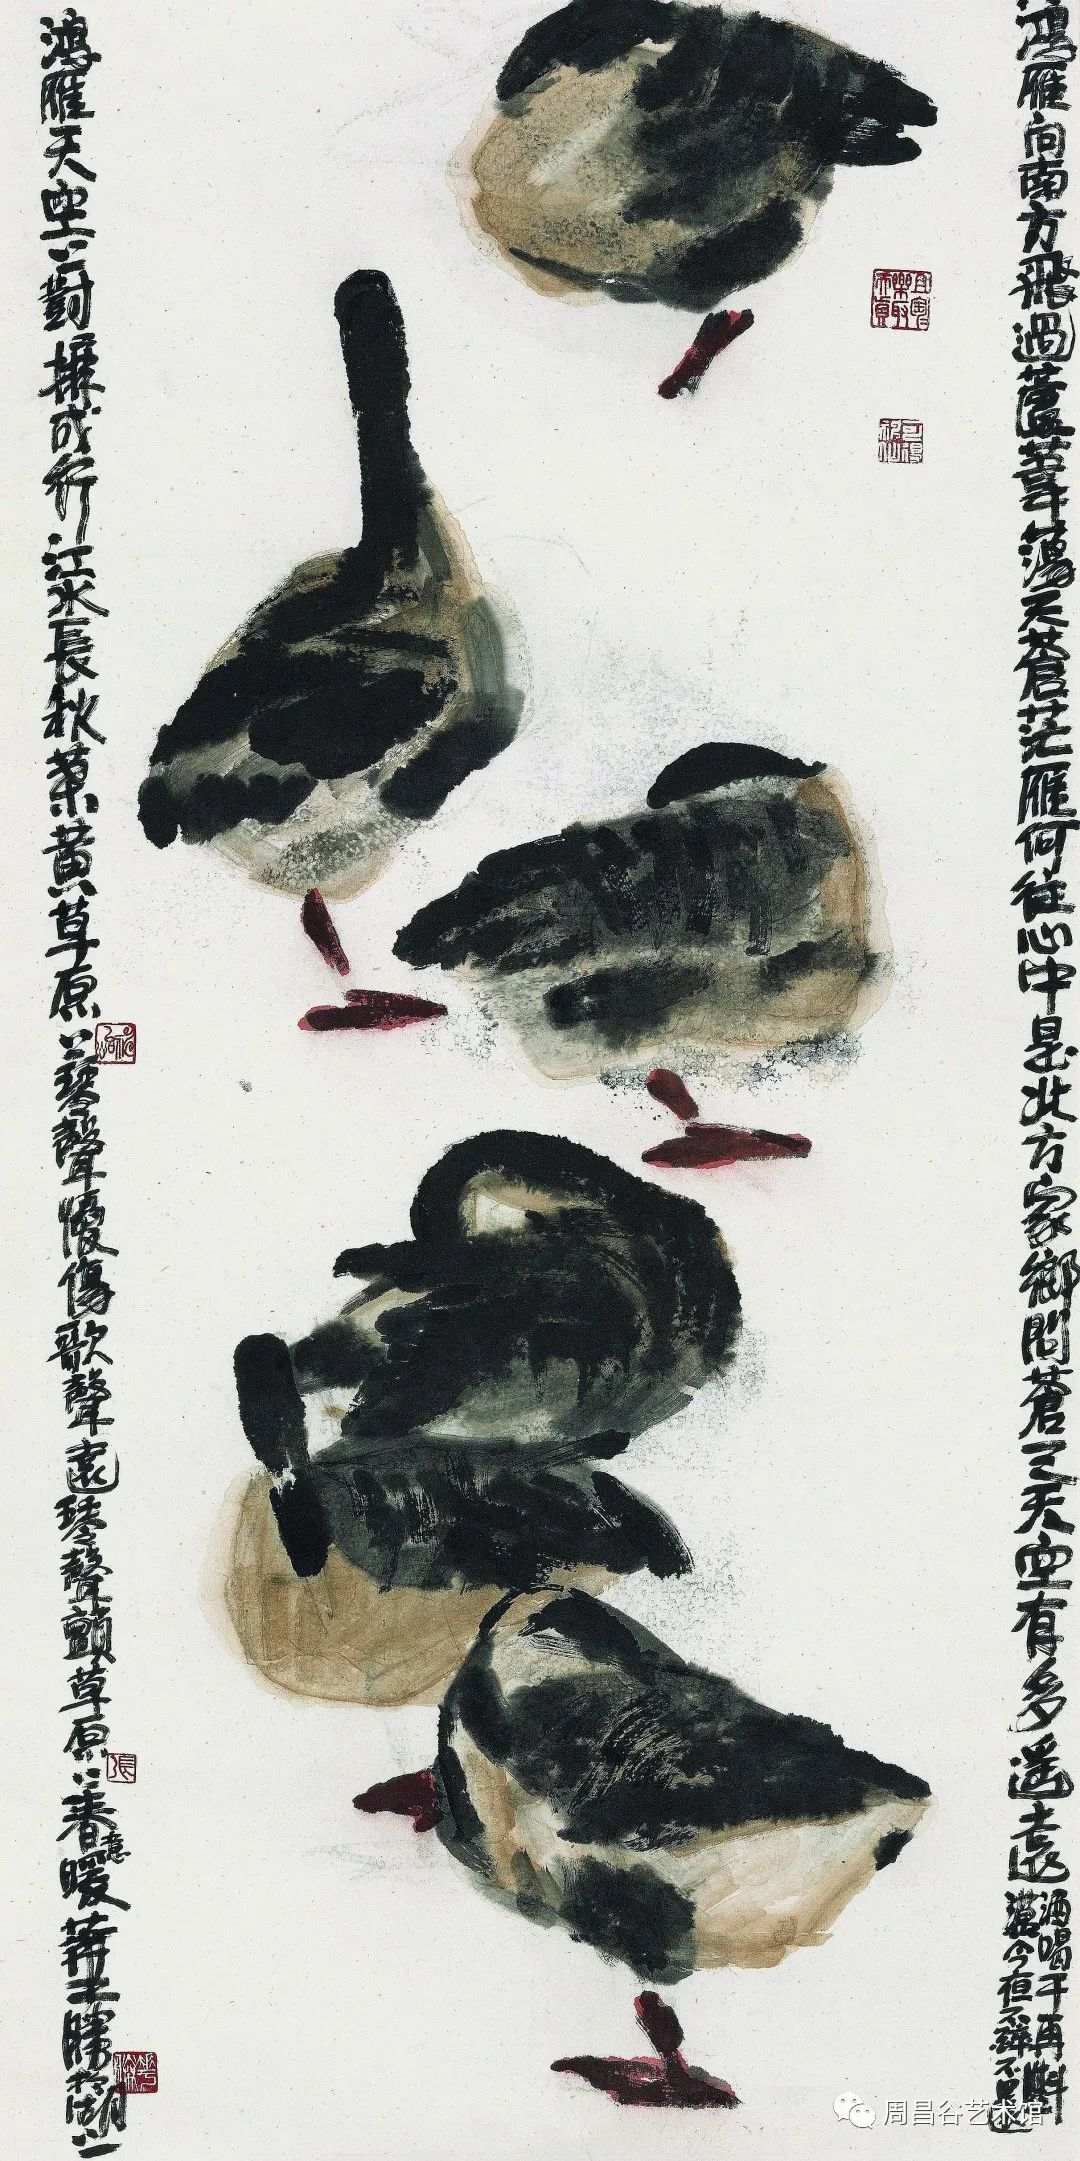 鴻雁向南方飛過蘆葦蕩天蒼茫雁何往心中是北方家鄉問蒼〻天空有多遥遠
酒喝干再斟
滿今夜不醉不還
鴻雁天空上對排成行江水長秋葉黃草原上琴聲憂傷歌聲遠琴聲顫草原上春意暖華勝於湖上
周昌谷艺术馆